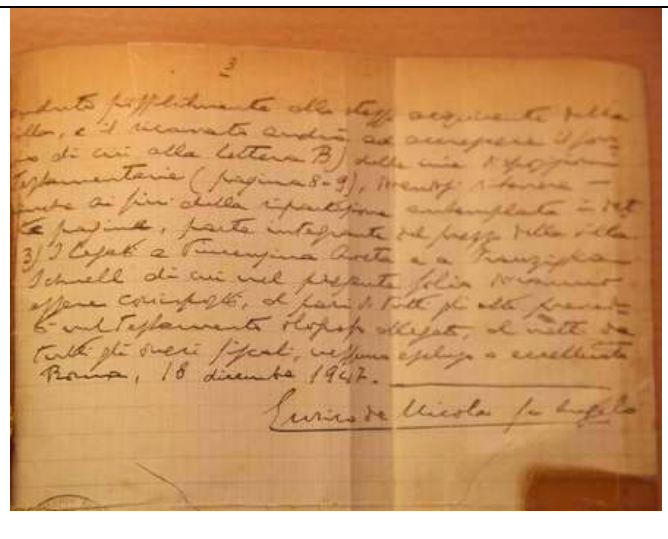 3
venduto possibilmente allo stesso acquirente della
villa, e il ricavato andrà ad accrescere il
di cui alla lettera B) delle mie disposizioni
testamentarie (pagina 8-9), dovendosi ritenere –
anche ai fini della ripartizione contemplata in det
ta pagina, parte integrante del prezzo della villa.
3) I legati a Vincenzina Aveta e a
Schnell di cui nel presente foglio dovranno
essere corrisposti, al pari di tutti gli altri
nel Testamento olografo allegato, al netto da
tutti gli oneri fiscali, nessuno escluso o eccettuato
Roma, 18 dicembre 1947.
Enrico de Nicola fu Angelo